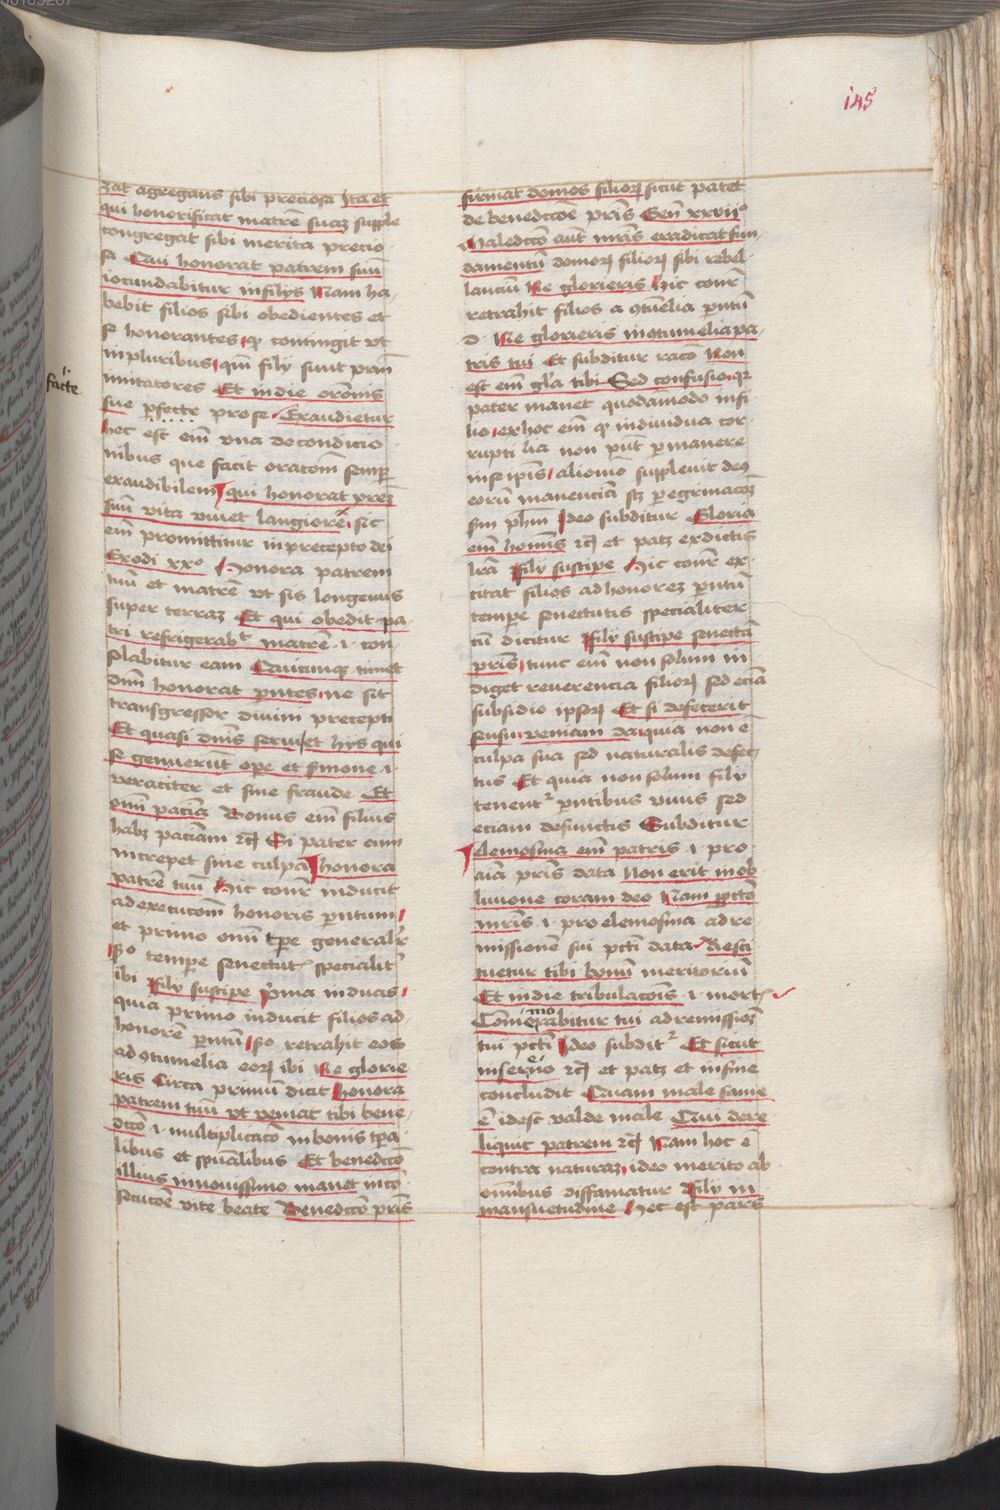 145
zat agregans sibi preciosa Ita et
qui honorificat matrē suaz supple
congregat sibi merita precio
sa Qui honorat patrem suū
iocundabitur in filijs Nam ha
bebit filios sibi obedientes et
se honorantes qꝫ contingit vt
in pluribus qm̄ filij sunt pr̄um
imitatores Et in die orōnis
facte
sue pfecte pro se Exaudietur
hec est em̄ vna de condicio
nibus que facit oracōm semꝑ
exaudibilem qui honorat prez
suū vita viuet langiorē sic
em̄ promittitur in precepto dei
Exodi xxº Honora patrem
tuū et matrē vt sis longeuus
super terraz Et qui obedit pa
tri refrigerabᵗ matrē ·i· con
solabitur eam Quicunqꝫ timet
dm̄ honorat pntes ne sit
transgressor diuini precepti
Et quasi dnis seruiet hijs qui
se genuerūt ope et smone ·i·
veraciter et sine fraude Et
omī paciā Bonus em̄ filius
habꝫ paciam rcꝫ Ei pater eum
increpet sine culpa honora
patrē tuū Hic conr̄ inducit
ad execucōm honoris pntum
et primo omī tpe generalr̄
2º tempe senectutꝭ specialitʳ
ibi Fily suscipe pma in duas
quia primo inducit filios ad
honorē pntū 2º retrahit eos
ad ꝯtumelia eorꝫ ibi Ne glorie
ris Circa primū dicit honora
patrem tuū vt veniat tibi bene
dcō ·i· multiplicacō in bonis tpa
libus et spūalibus Et benedcō
illius in nouissimo manet in cō
secucōe vite beate Benedcō pris
firmat domos filiorꝫ sicut patet
de benedccōe pris Gen̄ xxvijº
Maledccō aūt mris eradicat fun
damentū domorꝫ filiorꝫ sibi rebel
lanciū Ne glorieris Hic conr̄
retrahit filios a ꝯtuēlia pntū
d· Ne glorieris in ꝯtumelia pa
tris tui Et subditur racō Non
est em̄ glā tibi Sed confusio qꝛ
pater manet quodamodo in fi
lio ex hoc em̄ qꝫ indiuidua cor
rupti lia non pn̄t pmanere
in se ipis alio mō suppleuit deꝰ
eorū manenciā sꝫ pegrinacōꝫ
sm ph̄m Ideo subditur Gloria
em̄ homīs rcꝫ et patꝫ ex dictis
lrā Fily suscipe Hic conr̄ ex
citat filios ad honorez pntū
tempe senectutis specialiter
cū dicitur Fily suscipe senectā
pris tunc em̄ non solum in
diget reuerencia filiorꝫ sed eciā
subsidio ipsorꝫ Et si defecerit
sensu veniam da quia non ē
culpa sua sed naturalis defec
tus Et quia non solum fily
tenentʳ pntibus viuis sed
eciam defunctis Subditur
Elemosina em̄ patris ·i· pro
aīa pris data Non erit in ob
liuione coram deo Nam pctō
mris ·i· pro elemosina ad re
missionē sui pctī data Resti
tuetur tibi bonū meritoriū
Et in die tribulacōis ·i· mortꝭ
Commemorabitur tui ad remissioꝫ
tui pctī Ideo subditʳ Et sicut
in sereno rcꝫ et patꝫ et in fine
concludit Quam male fame
ē idest valde male Qui dere
liquit patrem rcꝫ Nam hoc ē
contra naturaz ideo merito ab
omībus diffamatur Fily in
mansuetudine Hec est pars